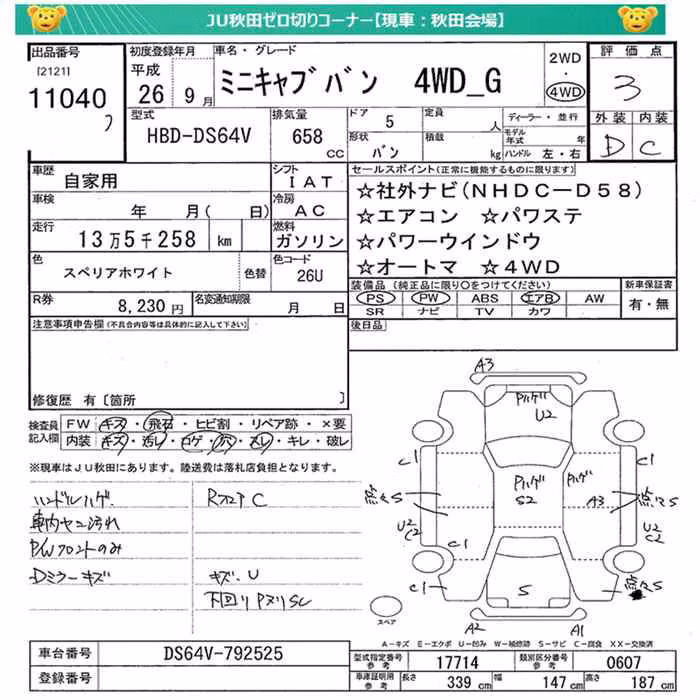 JU秋田ゼロ切りコーナー【現車：秋田会場】
出品番号 初度登録年月 車名・グレード 2WD 評価点
[2121] 平成 ミニキャブバン 4WD_G ・ 3
11040 26 9月 4WD
フ 型式 排気量 ドア 5 定員 人 ディーラー・並行 外装 内装
HBD-DS64V 658 CC 形状 バン 積載 kg モデル年式 年 D C
ハンドル 左・右
車歴 自家用 シフト IAT セールスポイント(正常に機能するものに限ります)
車検 年 月( 日) 冷房 AC ☆社外ナビ(NHDC-D58)
走行 13万5千258 km 燃料 ガソリン ☆エアコン ☆パワステ
☆パワーウインドウ
色 スペリアホワイト 色替 色コード 26U ☆オートマ ☆4WD
装備品 (純正品に限り○をつけてください) 新車保証書
R券 8,230円 名変通知期限 月 日 PS PW ABS エアB AW 有・無
SR ナビ TV カワ
注意事項申告欄(不具合内容等は具体的に記入して下さい) 後日品
修復歴 有〔箇所 〕
検査員記入欄 FW キズ・飛石・ヒビ割・リペア跡・×要
内装 キズ・汚レ・コゲ・穴・ヌレ・キレ・破レ
※現車はJU秋田にあります。陸送費は落札店負担となります。
ハンドルハゲ
車内ヤニ汚れ
P/Wフロントのみ
Dミラーキズ
RフロアC
キズ、U
下回りPヌリSC
A3
Pハゲ
U2
C1 C1
Pハゲ Pハゲ
S2 A3
点々S 点々S
U2 U2
C2 C2
C1 C1
C1 S 点々S
A2 A1
スペア
A-キズ E-エクボ U-凹み W-補修跡 S-サビ C-腐食 XX-交換済
車台番号 DS64V-792525 型式指定番号 参考 17714 類別区分番号 参考 0607
登録番号 車庫証明用 参考 長さ 339 cm 幅 147 cm 高さ 187 cm